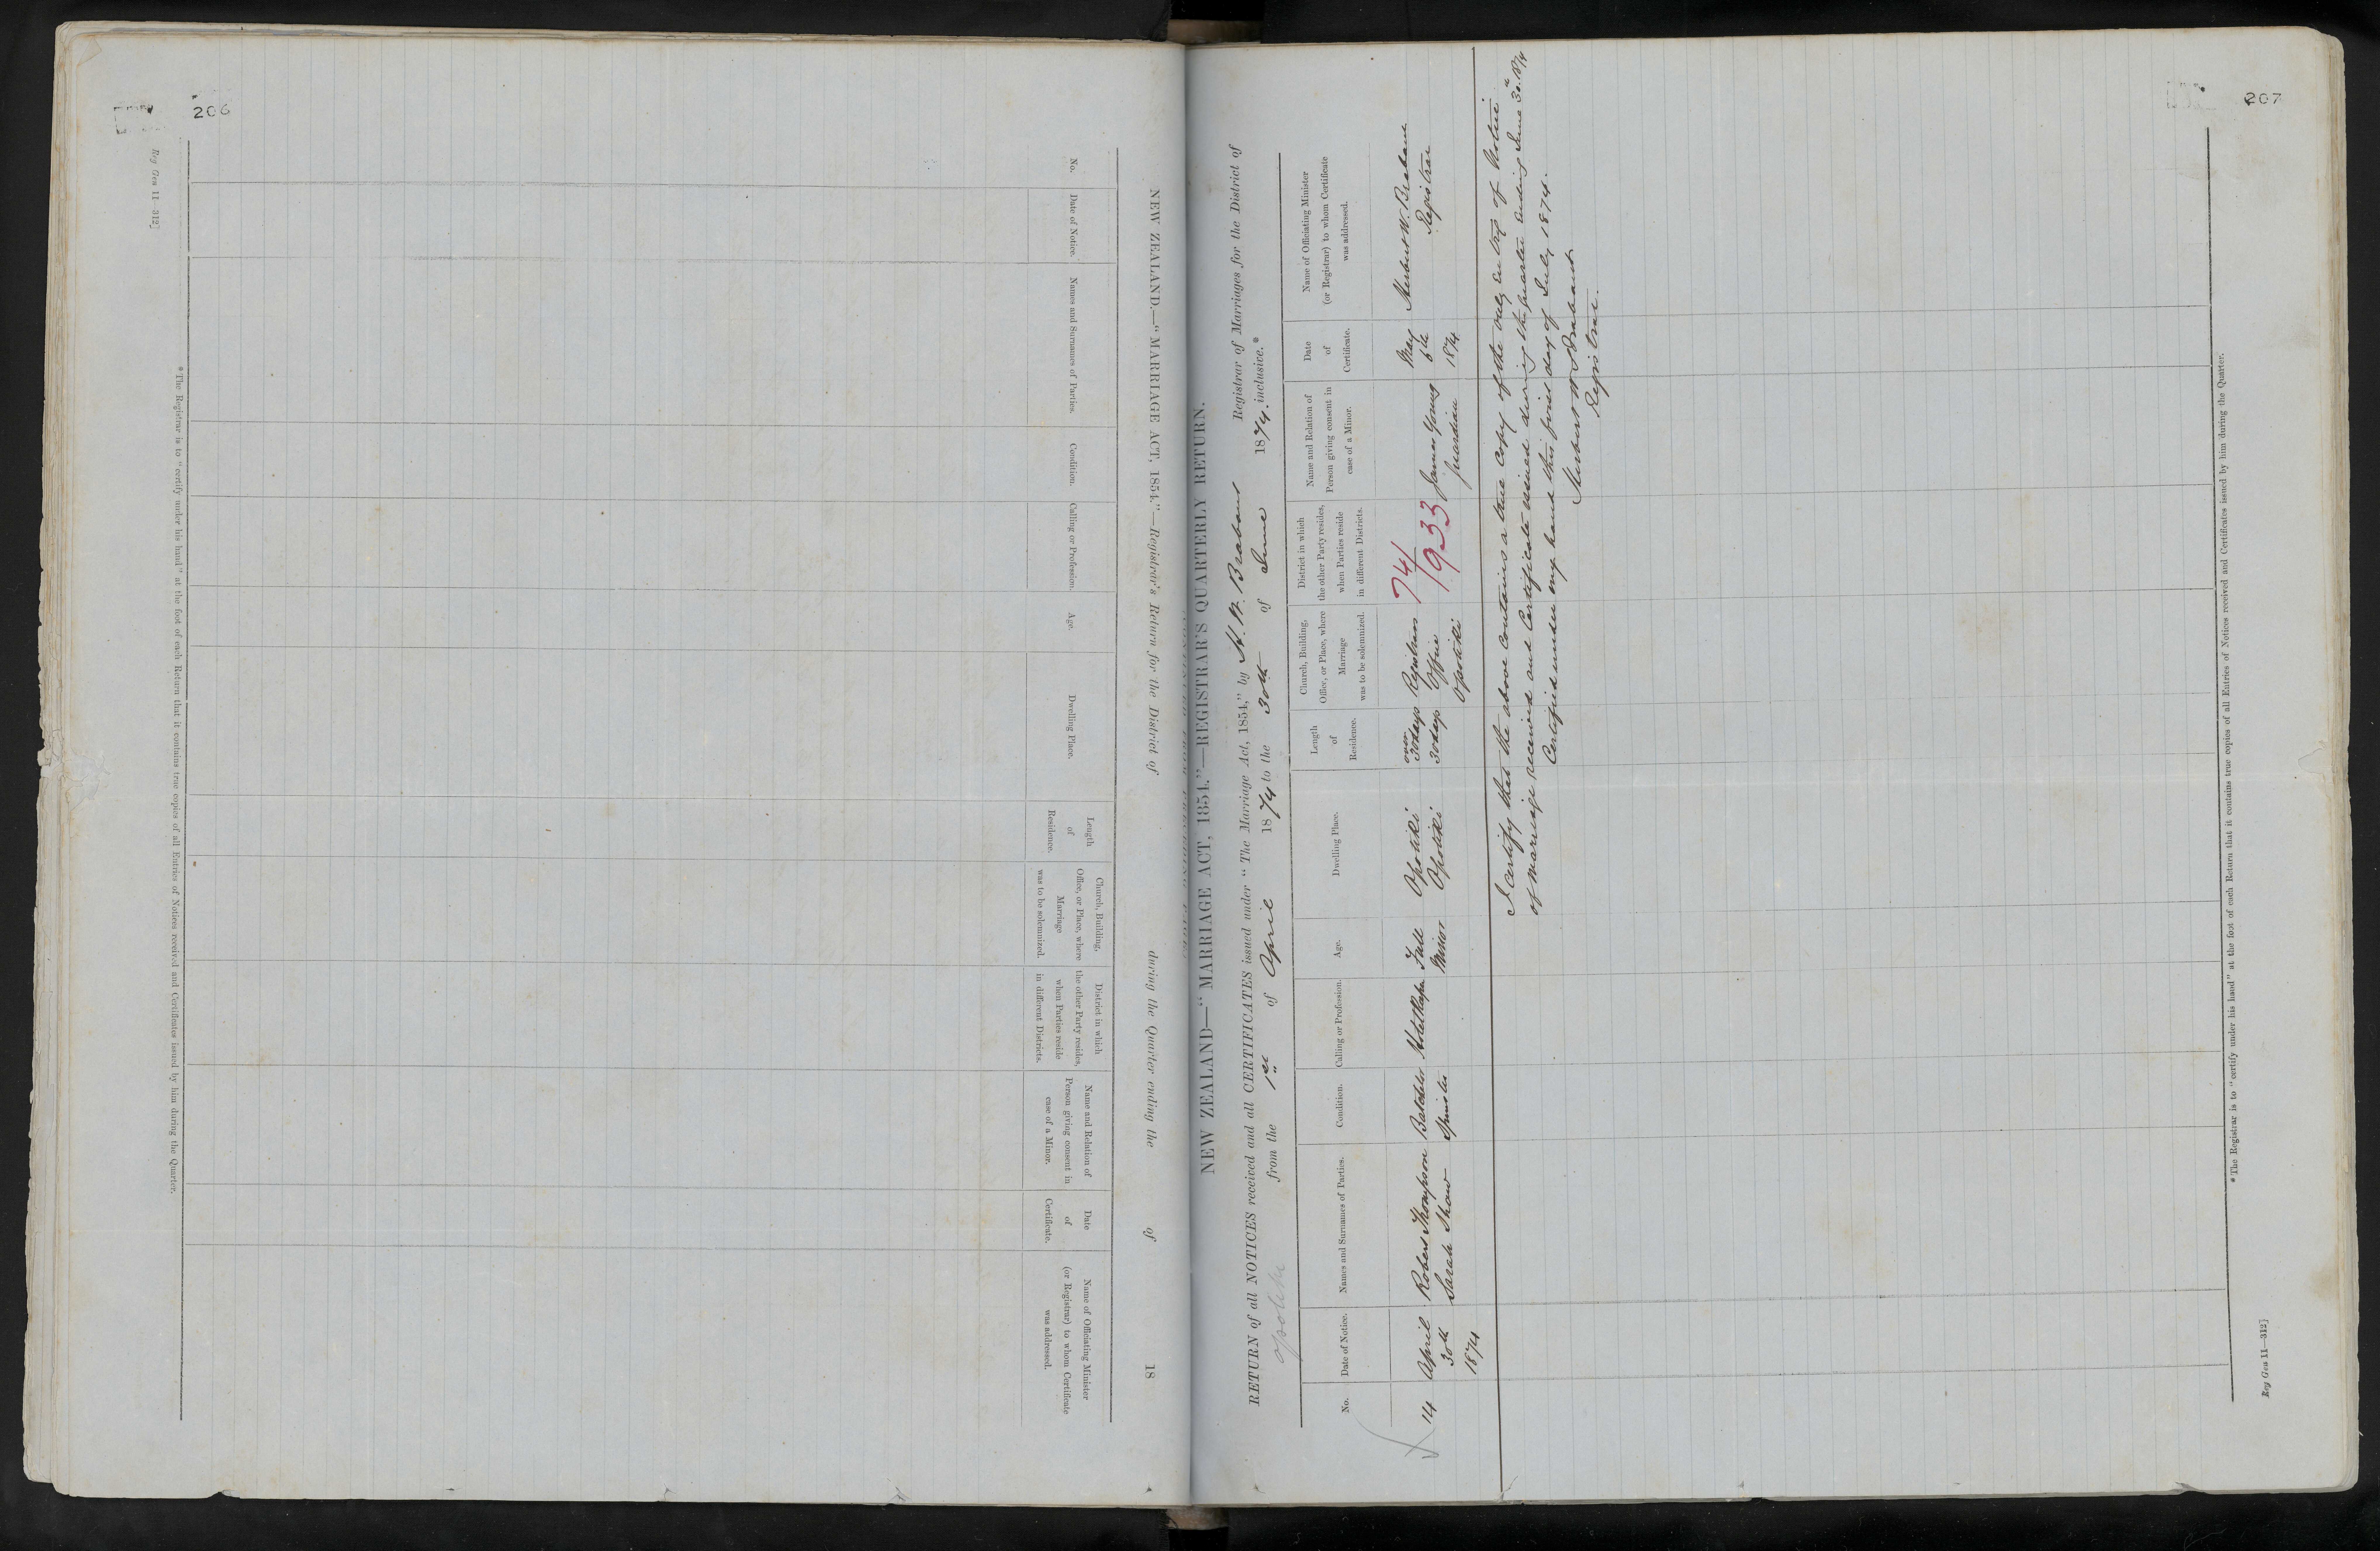 206
Reg Gen 11—312]
NEW ZEALAND.—"MARRIAGE ACT, 1854."—Registrar's Return for the District of during the Quarter ending the of 18
No.
Date of Notice.
Names and Surnames of Parties.
Condition.
Calling or Profession.
Age.
Dwelling Place.
Length
of
Residence.
Church, Building,
Office, or Place, where
Marriage
was to be solemnized.
District in which
the other Party resides,
when Parties reside
in different Districts.
Name and Relation of
Person giving consent in
case of a Minor.
Date
of
Certificate.
Name of Officiating Minister
(or Registrar) to whom Certificate
was addressed.
* The Registrar is to "certify under his hand" at the foot of each Return that it contains true copies of all Entries of Notices received and Certificates issued by him during the Quarter.
207
NEW ZEALAND—"MARRIAGE ACT, 1854."—REGISTRAR'S QUARTERLY RETURN.
RETURN of all NOTICES received and all CERTIFICATES issued under "The Marriage Act, 1854," by H. W. Brabant Registrar of Marriages for the District of
Opotiki from the 1st of April 1874 to the 30th of June 1874 inclusive.*
No.
Date of Notice.
Names and Surnames of Parties.
Condition.
Calling or Profession.
Age.
Dwelling Place.
Length
of
Residence.
Church, Building,
Office, or Place, where
Marriage
was to be solemnized.
District in which
the other Party resides,
when Parties reside
in different Districts.
Name and Relation of
Person giving consent in
case of a Minor.
Date
of
Certificate.
Name of Officiating Minister
(or Registrar) to whom Certificate
was addressed.
14
April
30th
1874
Robert Thompson
Sarah Shaw
Batchelor
Spinster
Full
Minor
Opotiki
Opotiki
over
30 days
30 days
Registrars
Office
Opotiki
74/
1933
James Young
Guardian
May
6th
1874
Herbert W. Brabant
Registrar
I certify that the above contains a true copy of the only entry of Notice
of marriage received and Certificate issued during the quarter ending June 30th 1874
Certified under my hand this first day of July 1874.
Herbert W Brabant
Registrar.
* The Registrar is to "certify under his hand" at the foot of each Return that it contains true copies of all Entries of Notices received and Certificates issued by him during the Quarter.
Reg Gen 11—312]